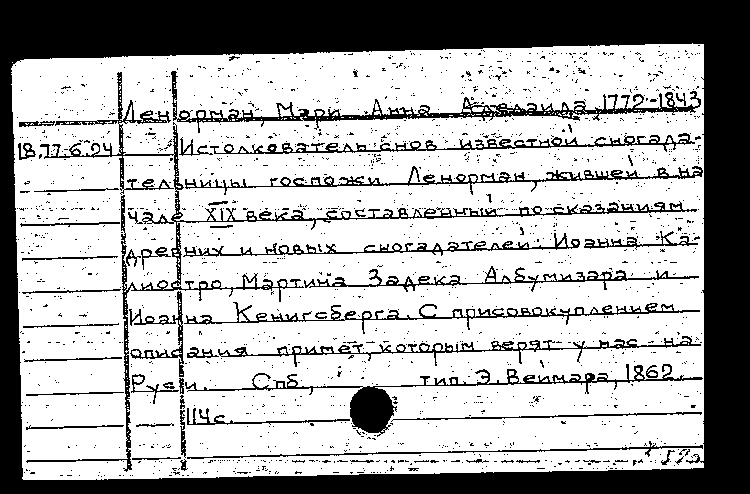 Ленорман, Мари Анна Аделаида, 1772-1843
18.77.6.04 Истолкователь снов известной сногада-
тельницы госпожи Ленорман, жившей в на
чале XIX века, составленный по сказаниям
древних и новых сногадателей: Иоанна Ка-
лиостро, Мартина Задека Албумизара и
Иоанна Кенигсберга. С присовокуплением
описания примет, которым верят у нас на
Руси. Спб, тип. Э. Веймара, 1862.
114с.